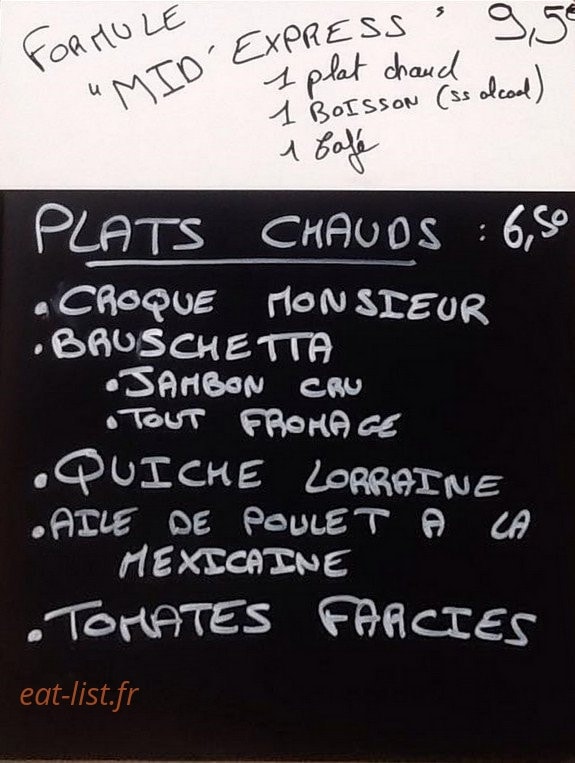 FORMULE
"MID' EXPRESS" 9,5€
1 plat chaud
1 BOISSON (ss alcool)
1 Café
PLATS CHAUDS : 6,50
• CROQUE MONSIEUR
• BRUSCHETTA
• JAMBON CRU
• TOUT FROMAGE
• QUICHE LORRAINE
• AILE DE POULET A LA
MEXICAINE
• TOMATES FARCIES
eat-list.fr